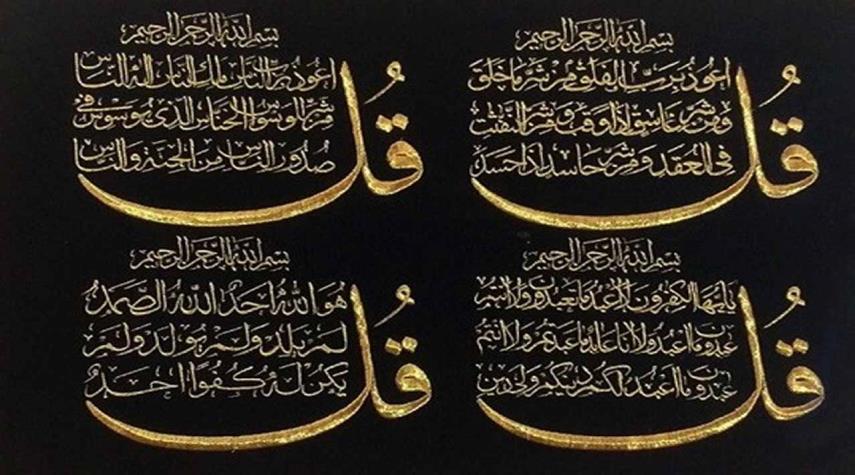 بسم الله الرحمن الرحيم
قل اعوذ برب الفلق من شر ما خلق
ومن شر غاسق اذا وقب ومن شر النفثت
في العقد ومن شر حاسد اذا حسد
بسم الله الرحمن الرحيم
قل اعوذ برب الناس ملك الناس اله الناس
من شر الوسواس الخناس الذي يوسوس في
صدور الناس من الجنة والناس
بسم الله الرحمن الرحيم
قل يايها الكفرون لا اعبد ما تعبدون ولا انتم
عبدون ما اعبد ولا انا عابد ما عبدتم ولا انتم
عبدون ما اعبد لكم دينكم ولي دين
بسم الله الرحمن الرحيم
قل هو الله احد الله الصمد
لم يلد ولم يولد ولم
يكن له كفوا احد